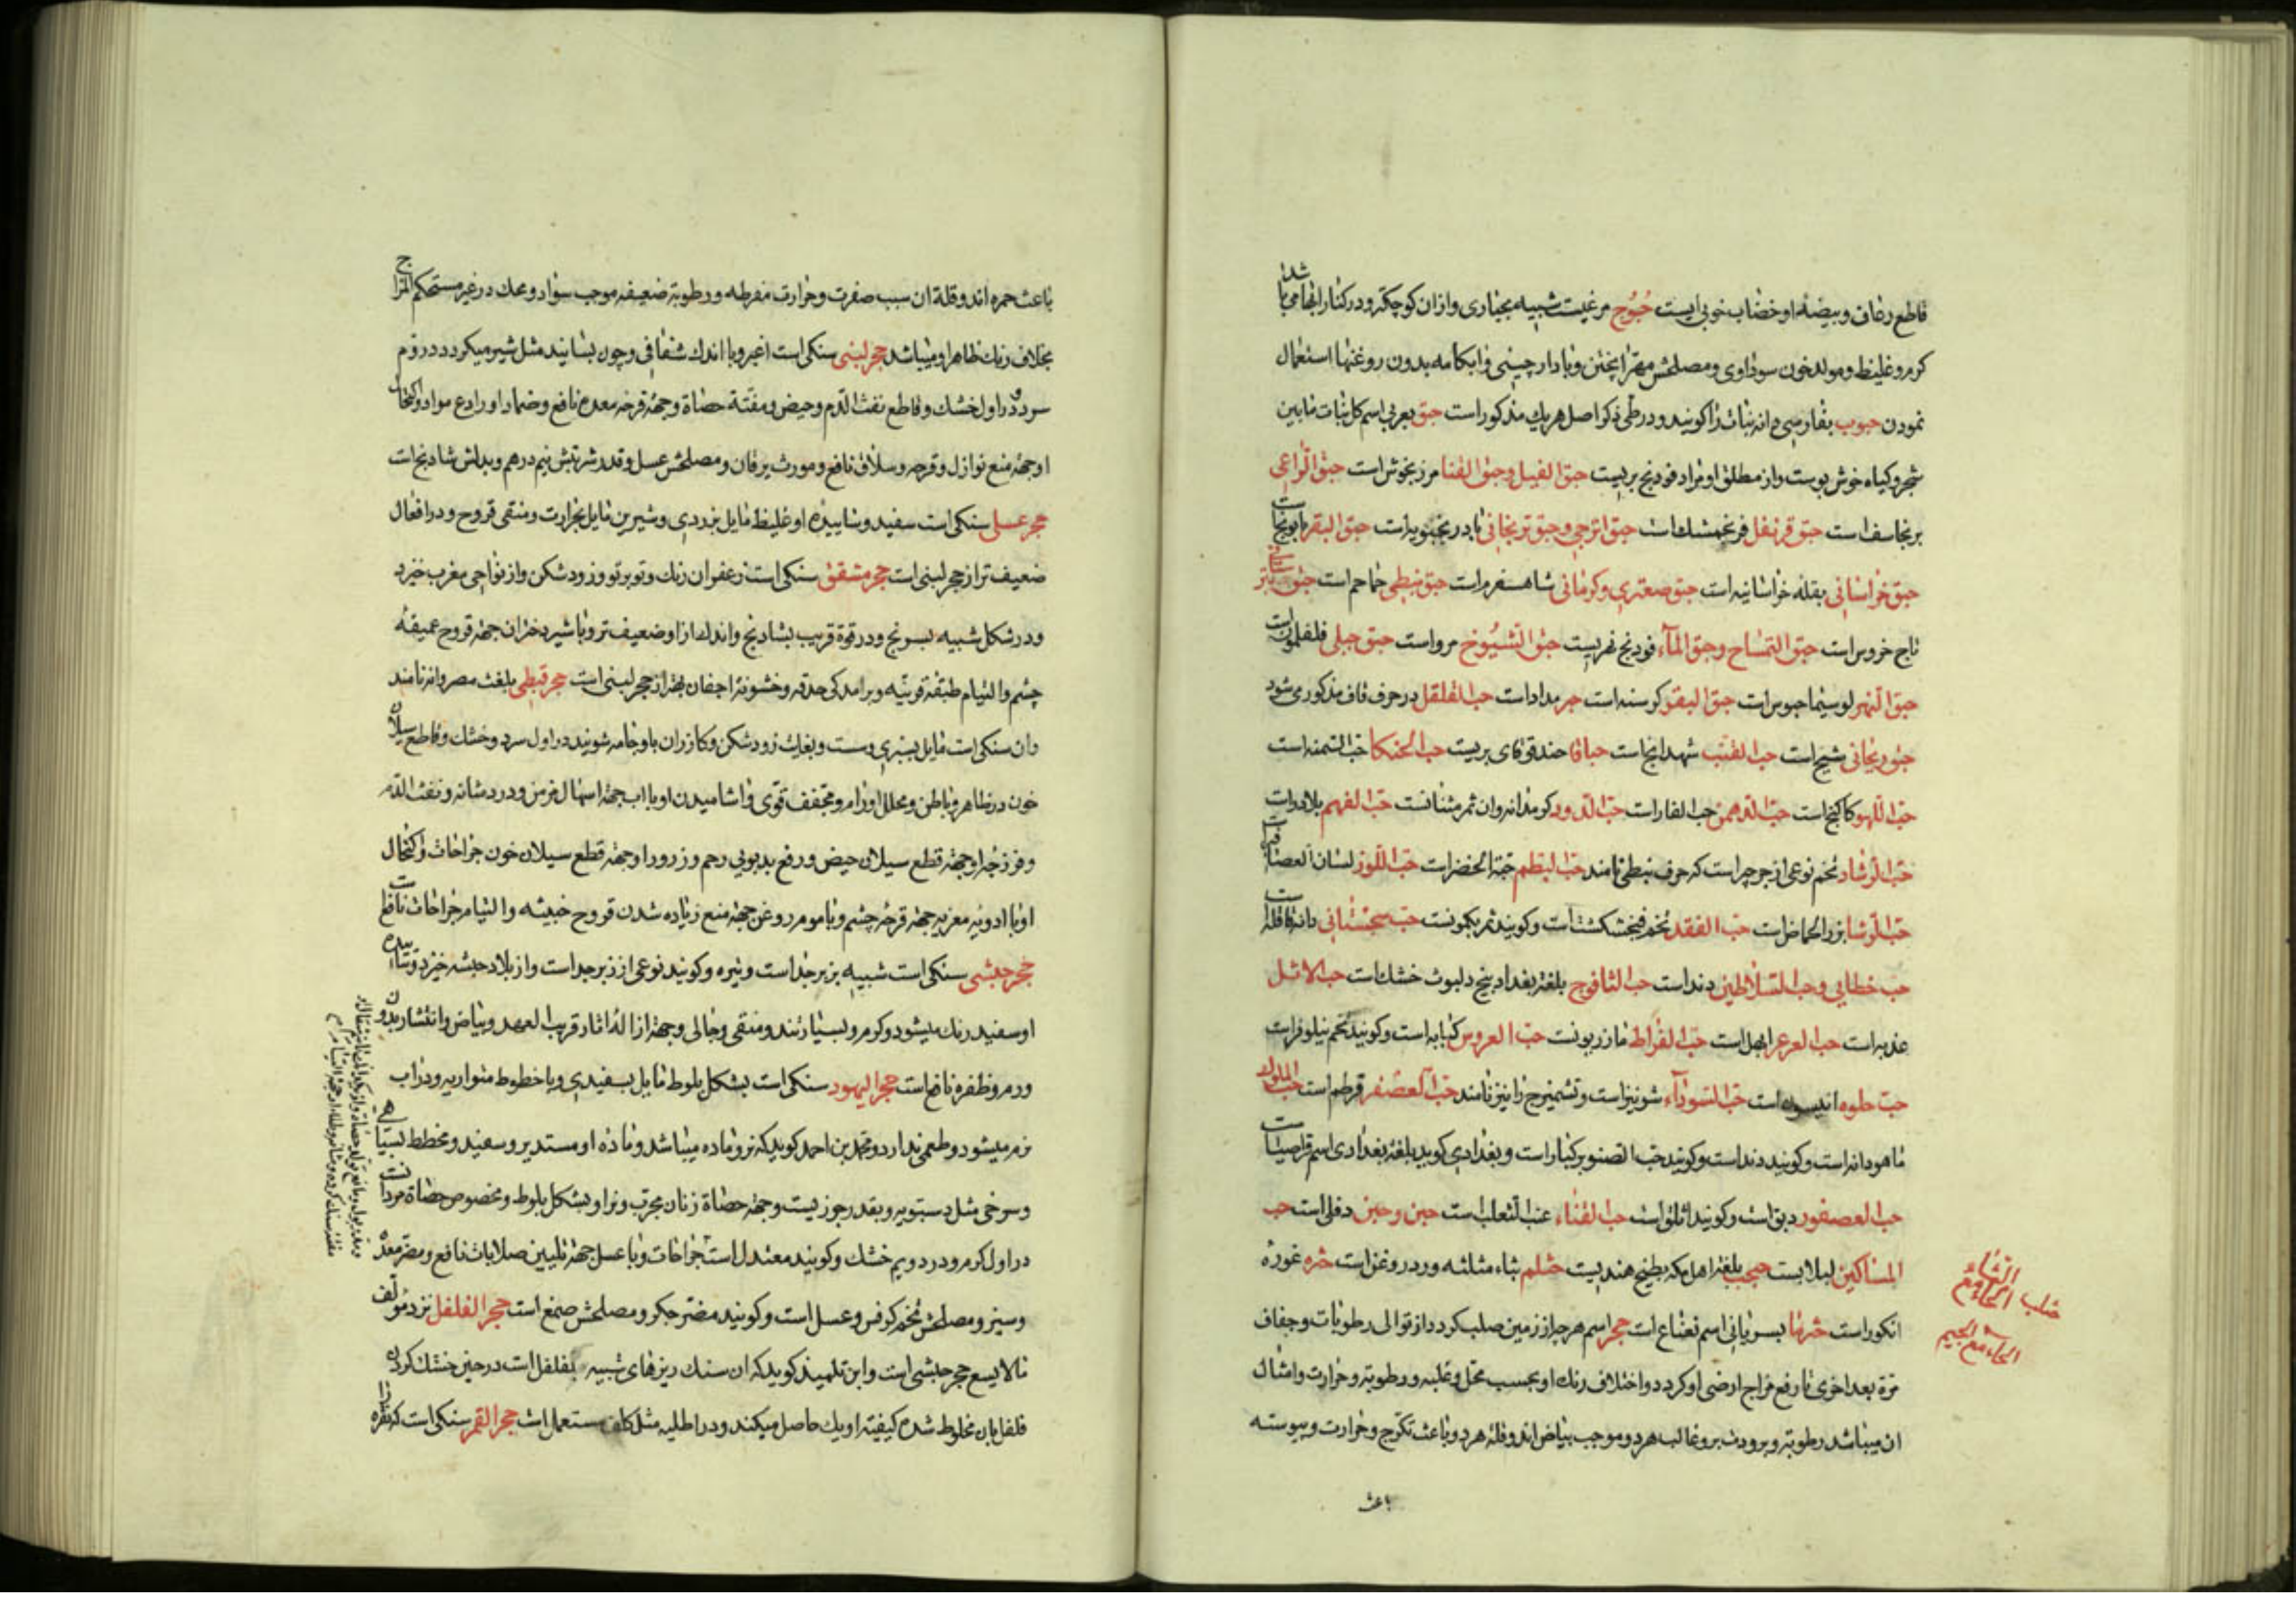 قاطع رعاف و بیضهٔ او خضاب خوبی‌ایست حُبُوُج مرغیست شبیه بحباری و ازان کوچکتر و در کنار ابها می باشد
کرم و غلیظ و مولد خون سوداوی و مصلحش مهرّا پختن و با دارچینی و ابکامه بدون روغنها استعمال
نمودن حبوب بفارسی دانهٔ نبات را کویند و در طی ذکر اصل هر یک مذکور است حبق بعربی اسم کل نبات مابین
شجر و کیاه خوش بوست و از مطلق او مراد فودنج بریست حبق الفیل و حبق القنا مرزنجوش است حبق الراعی
برنجاسف است حبق قرنفل فرنجمشک است حبق اترجی و حبق ترنجانی بادرنجبویه است حبق البقر بابونج است
حبق خراسانی بقلهٔ خراسانیه است حبق صعتری و کرمانی شاهسفرم است حبق نبطی حماحم است حبق
تاج خروس است حبق التمساح و حبق المآء فودنج نهریست حبق الشیُوخ مرو است حبق جبلی است
حبق البقر کرسنه است حبر مداد است حب القلقل در حرف قاف مذکور می شود
حبق ریحانی شیح است حب القنّب شهدانج است حباقا حندقوقای بریست حب الحنکلا حب السمنه است
حبّ اللهو کاکنج است حبّ الدهمن حب الغار است حبّ الفهم بلادر است
حبّ الرشاد تخم نوعی از جرجیر است که حرف نبطی نامند حبّ البطم حبّة الخضرا است حبّ اللوز لسان العصافیر است
حبّ الرشا بزر الحماض است حبّ الفقد تخم فنجنکشت است و کویند حبّ سجستانی دانه
حب خطایی و حب السّلاطین دند است بلغة بغداد بیخ دلبوث خشک است حب الاثل
عذبه است حب العرعر ابهل است حبّ العروس کبابه است و کویند تخم نیلوفر است
حبّ حلوه انیسون است حبّ السودآء شونیز است و تشمیزج را نیز نامند حبّ العصفر قرطم است حب الملوک
ماهودانه است و کویند دند است و کویند حبّ الصنوبر کبار است و بغدادی کوید بلغة بغدادی اسم قراصیا است
حب العصفور دبق است و کویند است حب القناء عنب الثعلب است حبن و حبین دفلی است حب
المساکین لبلابست حبحب بلغة اهل مکه بطیخ هندیست حثلم بثاء مثلثه و در دروغن است حثره غوره
انکور است حثرنا بسریانی اسم نعناع است حجر اسم هرچه از زمین صلب کردد از توالی رطوبات و جفاف
مرة بعد اخری تا رفع مزاج ارضی او کردد و اختلاف رنک او بحسب محل و غلبه و رطوبة و حرارت و امثال
ان میباشد رطوبة و برودت بر و غالب هر دو موجب بیاض اند و قلة هر دو باعث تکرّج و حرارت و یبوسته
باعث
الحاء مع الثاء
الحاء مع الجیم
باعث حمره اند و قلة ان سبب صفرت و حرارت مفرطه و رطوبة ضعیفه موجب سواد و محک در غیر مستحکم المزاج
بخلاف رنک ظاهر او میباشد حجر لبنی سنکی است اغبر و با اندک شفافی و چون بسایند مثل شیر میکردد در دوم
سرد و در اول خشک و قاطع نفث الدم و حیض و مفتته حصاة و جهة قرحه معده نافع و ضماد او رادع مواد و اکتحال
او جهة منع نوازل و قرحه و سلاق نافع و مورث یرقان و مصلحش عسل و قدر شربتش نیم درهم و بدلش شادنج است
حجر عسلی سنکی است سفید و ساییدهٔ او غلیظ مایل بزردی و شیرین مایل بحرارت و منقی قروح و در افعال
ضعیف تر از حجر لبنی است حجر مشقق سنکی است زعفران رنک و تو بر تو و زود شکن و از نواحی مغرب خیزد
و در شکل شبیه بسونج و در قوة قریب بشادنج و اندک ازاو ضعیف تر و با شیر دختران جهة قروح عمیقهٔ
چشم و التیام طبقهٔ قرنیه و برآمدکی حدقه و خشونة اجفان بهتر از حجر لبنی است حجر قبطی بلغت مصر وانه نامند
وان سنکی است مایل بسبزی و سست و بغایت زود شکن و کازران با و جامه شویند در اول سرد و خشک و قاطع سیلان
خون در ظاهر و باطن و محلل اورام و مجفف قوی و اشامیدن او با اب جهة اسهال مزمن و درد مثانه و نفث الدم
و فرزجهٔ او جهة قطع سیلان حیض و رفع بدبویی رحم و زرور او جهة قطع سیلان خون جراحات و اکتحال
او با ادویه مغریه جهة قرحه چشم و با موم روغن جهة منع زیاده شدن قروح خبیثه و التیام جراحات نافع است
حجر حبشی سنکی است شبیه بزبرجد است و تیره و کویند نوعی از زبرجد است و از بلاد حبشه خیزد و سائیده
او سفید رنک میشود و کرم و بسیار تند و منقی و جالی و جهة ازالهٔ اثار قریب العهد و بیاض و انتشار بدون
ورم و ظفره نافع است حجر الیهود سنکی است بشکل بلوط مایل بسفیدی و با خطوط متواریه و در اب
نرم میشود و طعمی ندارد و محمّد بن احمد کوید که نر و ماده میباشد و مادهٔ او مستدیر و سفید و مخطط بسیاهی
و سرخی مثل دستبویه و بقدر جوزیست و جهة حصاة زنان مجرّب و نر او بشکل بلوط و مخصوص حصاة مردانست
در اول کرم و در دویم خشک و کویند معتدل است جراحات و با عسل جهة تلیین صلابات نافع و مضرّ معده
و سپرز و مصلحش تخم کرفس و عسل است و کویند مضرّ جکر و مصلحش صمغ است حجر الفلفل نزد مؤلف
مالایسع حجر حبشی است و ابن تلمیذ کوید که ان سنک ریزهای شبیه بفلفل است در حین خشک کردن
فلفل بان مخلوط شده کیفیته او بک حاصل میکند و در اطلیه مثل کلف مستعمل است حجر القمر سنکی است که نقره را